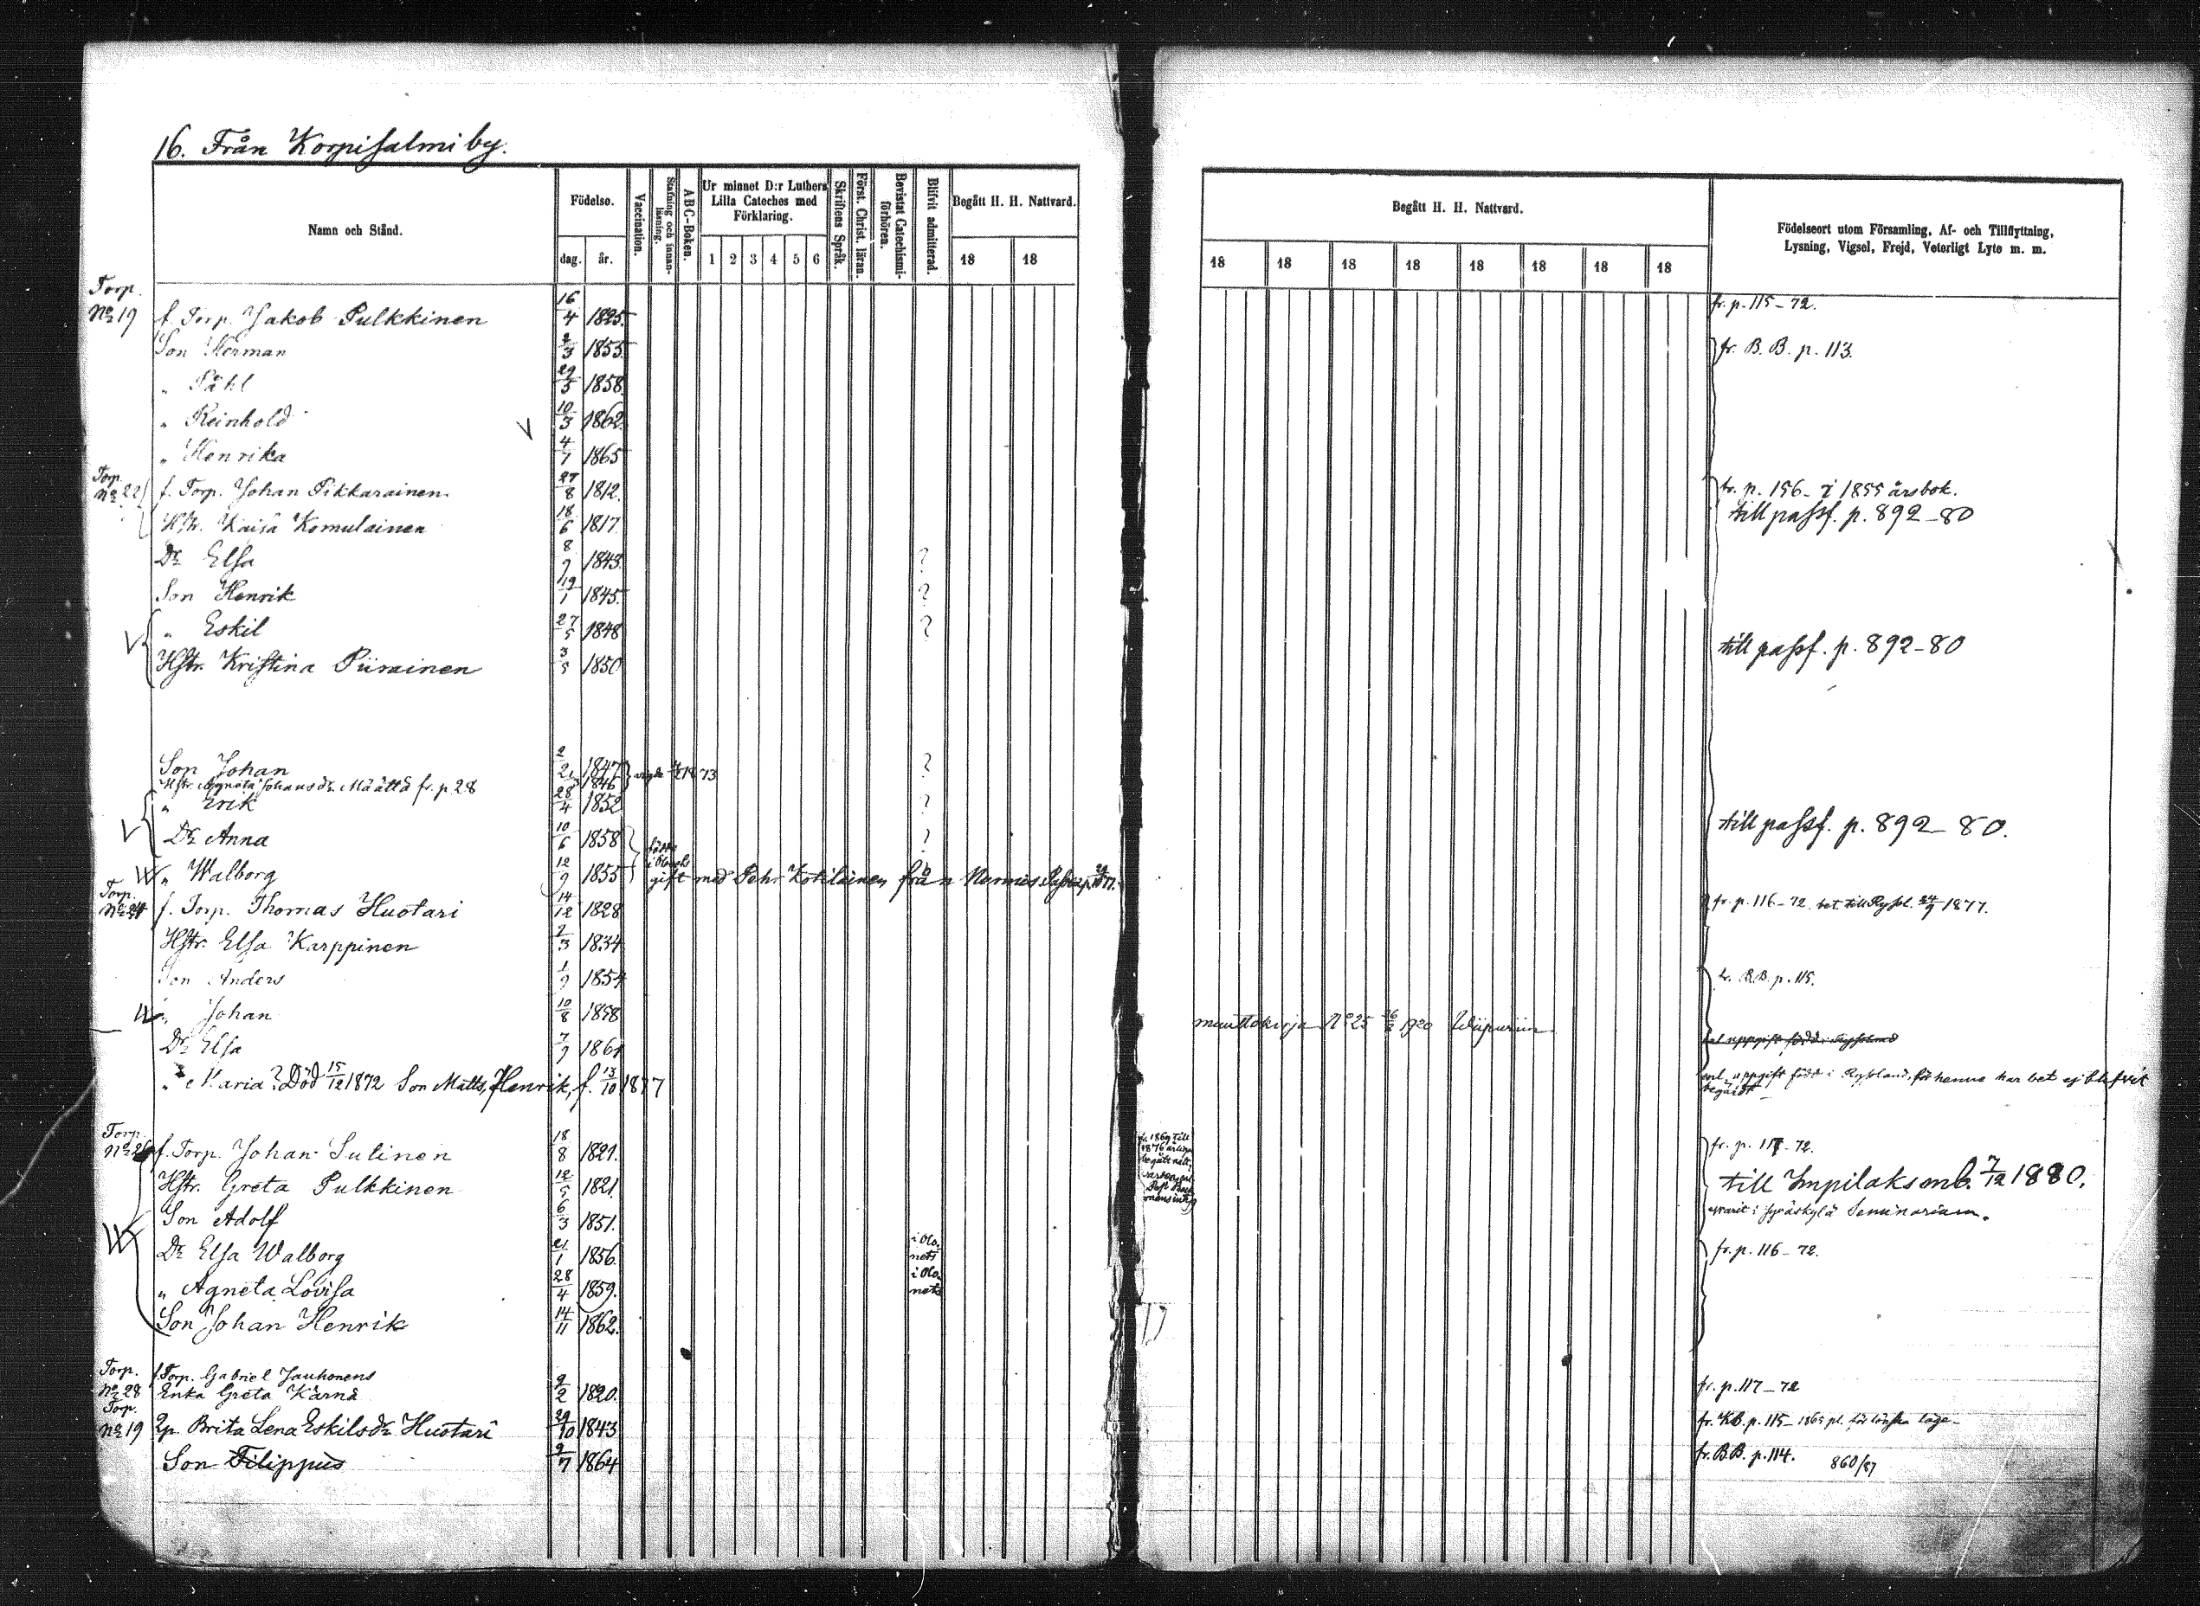 16. Från Korpisalmi by.
Namn och Stånd.
Födelse.
dag. år.
Vaccination.
Stafning och innanläsning.
ABC-Boken.
Ur minnet D:r Luthers Lilla Cateches med Förklaring.
1 2 3 4 5 6
Skriftens Språk.
Först. Christ. läran.
Bevistat Catechismi-förhören.
Blifvit admitterad.
Begått H. H. Nattvard.
18 18
Begått H. H. Nattvard.
18 18 18 18 18 18 18 18
Födelseort utom Församling, Af- och Tillflyttning,
Lysning, Vigsel, Frejd, Veterligt Lyte m. m.
Torp. No 19 f. Torp. Jakob Pulkkinen 16/4 1825. fr. p. 115-72.
Son Herman 2/3 1855 fr. B. B. p. 113.
" Påhl 29/5 1858
" Reinhold 10/3 1862
" Henrika 4/7 1865
Torp. No 22 f. Torp. Johan Pikkarainen 27/8 1812. fr. p. 156- i 1855 årsbok.
Hstr. Kaisa Komulainen 18/6 1817. till passf. p. 892-80
Dr Elsa 8/9 1843. ?
Son Henrik 19/1 1845. ?
" Eskil 27/5 1848 ?
Hstr. Kristina Piirainen 3/5 1850 till passf. p. 892-80
Son Johan 1847 ?
Hstr. Agneta Johansdr. Määttä fr. p 28 1846 1873
" Erik 28/4 1852 ?
Dr Anna 10/6 1858 ? till passf. p. 892-80.
" Walborg 12/9 1855 gift med Pehr Kotilainen från Nurmis
Torp. No 24 f. Torp. Thomas Huotari 14/12 1828 fr. p. 116-72 bet. till Ryssl. 24/9 1877.
Hstr. Elsa Karppinen 2/3 1834
Son Anders 1/9 1854 fr. B.B. p. 115.
" Johan 10/8 1858 muuttokirja No 25 1920 Wiipuriin
Dr Elsa 7/9 1861
" Maria? Död 15/12 1872 Son Matts, Henrik, f. 13/10 1877 enl. uppgift född i Ryssland, för henne har bet ej blifvit
begärdt
Torp. f. Torp. Johan Sulinen 18/8 1821. fr. p. 117-72.
Hstr. Greta Pulkkinen 12/5 1821. till Impilaks mb. 7/12 1880.
Son Adolf 6/3 1851. varit i Jyväskylä Seminarium.
Dr Elsa Walborg 21/1 1856. i Olonets fr. p. 116-72.
" Agneta Lovisa 28/4 1859. i Olonets
Son Johan Henrik 14/11 1862.
Torp. f. Torp. Gabriel Jauhonens
No 28 Enka Greta Kärnä 2/2 1820. fr. p. 117-72
Torp. No 19 Qp. Brita Lena Eskilsdr. Huotari 29/10 1843 fr. Kb. p. 115-
Son Filippus 9/7 1864 fr. B.B. p. 114. 860/87